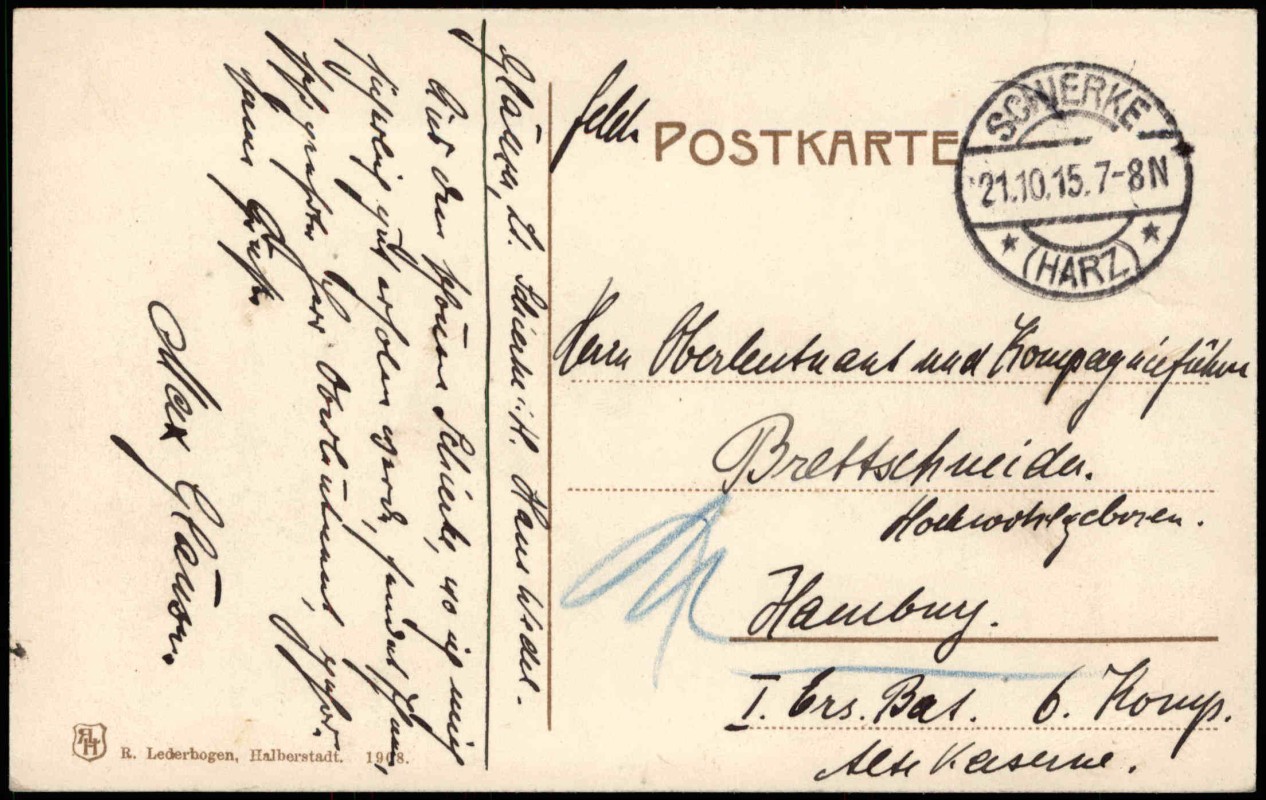 Feldp.
POSTKARTE
SCHIERKE
21.10.15. 7-8 N
(HARZ)
Herrn Oberleutnant und Kompagnieführer
Brettschneider.
Hochwohlgeboren.
Hamburg.
I. Ers. Bat. 6. Komp.
Alte Kaserne.
Schierke i. H. Haus Wedel.
Aus dem schönen Schierke, wo ich mich
gut erholen werde, sendet Ihnen,
Herr Oberleutnant, gehors.
Grüße
Max
R. Lederbogen, Halberstadt. 1908.